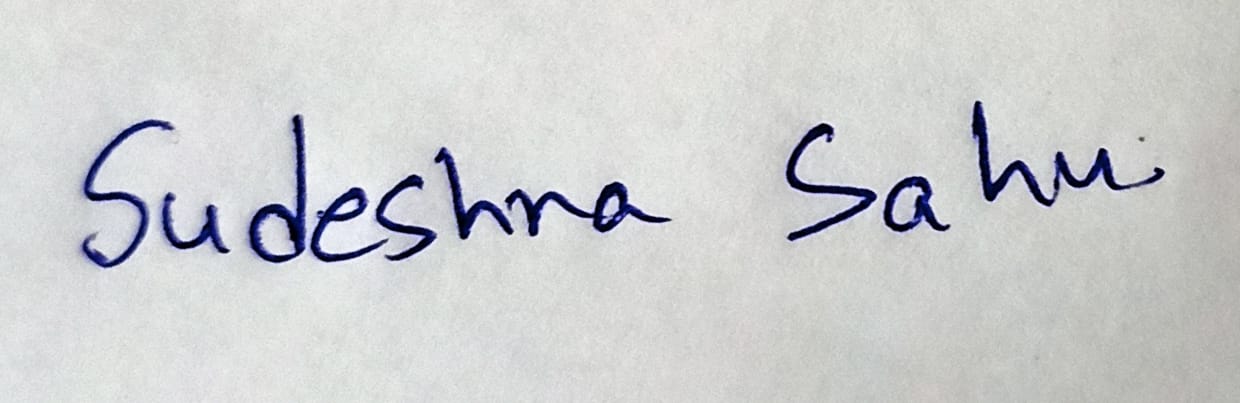 Sudeshna Sahu